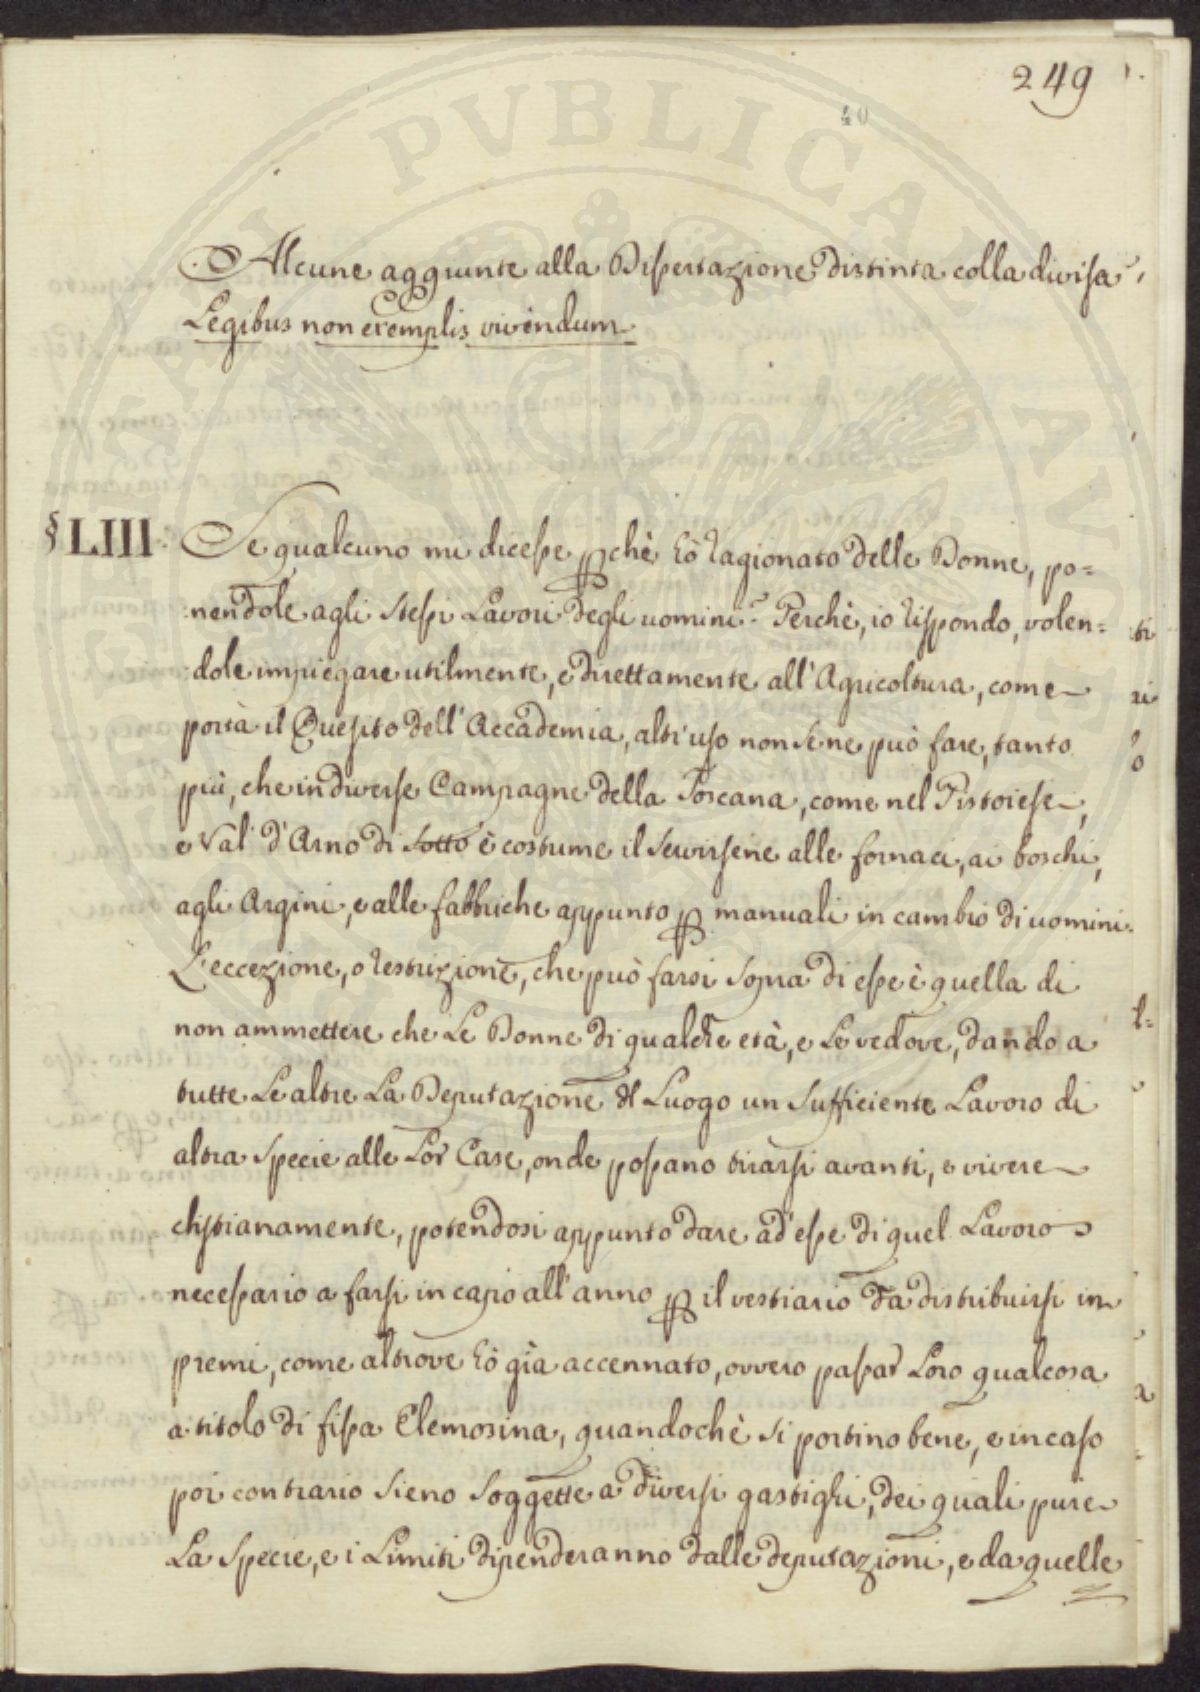 249
40
Alcune aggiunte alla Dissertazione distinta colla divisa,
Legibus non exemplis vivendum
§ LIII. Se qualcuno mi dicesse pchè hò ragionato delle Donne, po=
nendole agli stessi Lavori degli uomini? Perchè, io rispondo, volen=
dole impiegare utilmente, e direttamente all'Agricoltura, come
porta il Quesito dell'Accademia, altr'uso non se ne può fare, tanto
più, che in diverse Campagne della Toscana, come nel Pistoiese,
e Val d'Arno di Sotto è costume il servirsene alle fornaci, ai boschi,
agli Argini, e alle fabbriche appunto p manuali in cambio di uomini.
L'eccezione, o restrizione, che può farsi sopra di esse è quella di
non ammettere che Le Donne di qualche età, e Le vedove, dando a
tutte Le altre La Deputazione del Luogo un sufficiente Lavoro di
altra specie alle Lor Case, onde possano tirarsi avanti, e vivere
christianamente, potendosi appunto dare ad esse di quel Lavoro
necessario a farsi in capo all'anno p il vestiario da distribuirsi in
premi, come altrove hò già accennato, ovvero passar Loro qualcosa
a titolo di fissa Elemosina, quandochè si portino bene, e in caso
poi contrario sieno soggette a diversi gastighi, dei quali pure
La specie, e i Limiti dipenderanno dalle deputazioni, e da quelle